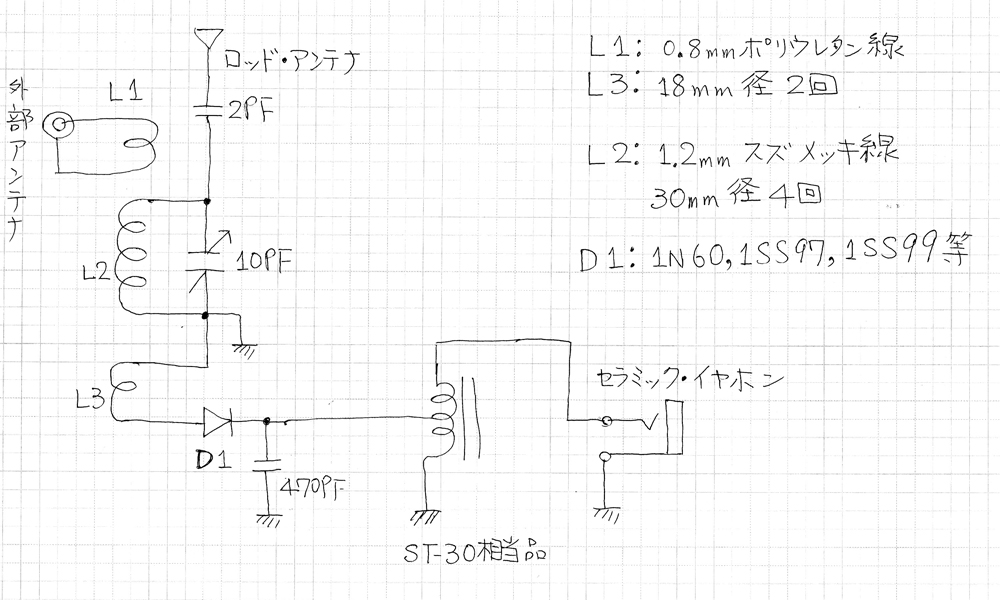 ロッド・アンテナ
外部アンテナ
L1
2PF
L2
10PF
L3
D1
470PF
ST-30相当品
セラミック・イヤホン
L1: 0.8mmポリウレタン線
L3: 18mm径2回
L2: 1.2mmスズメッキ線
30mm径4回
D1: 1N60,1SS97,1SS99等